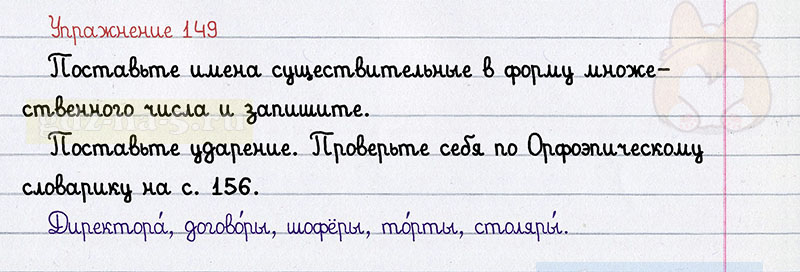 Упражнение 149
Поставьте имена существительные в форму множе-
ственного числа и запишите.
Поставьте ударение. Проверьте себя по Орфоэпическому
словарику на с. 156.
Директора́, догово́ры, шофёры, то́рты, столяры́.